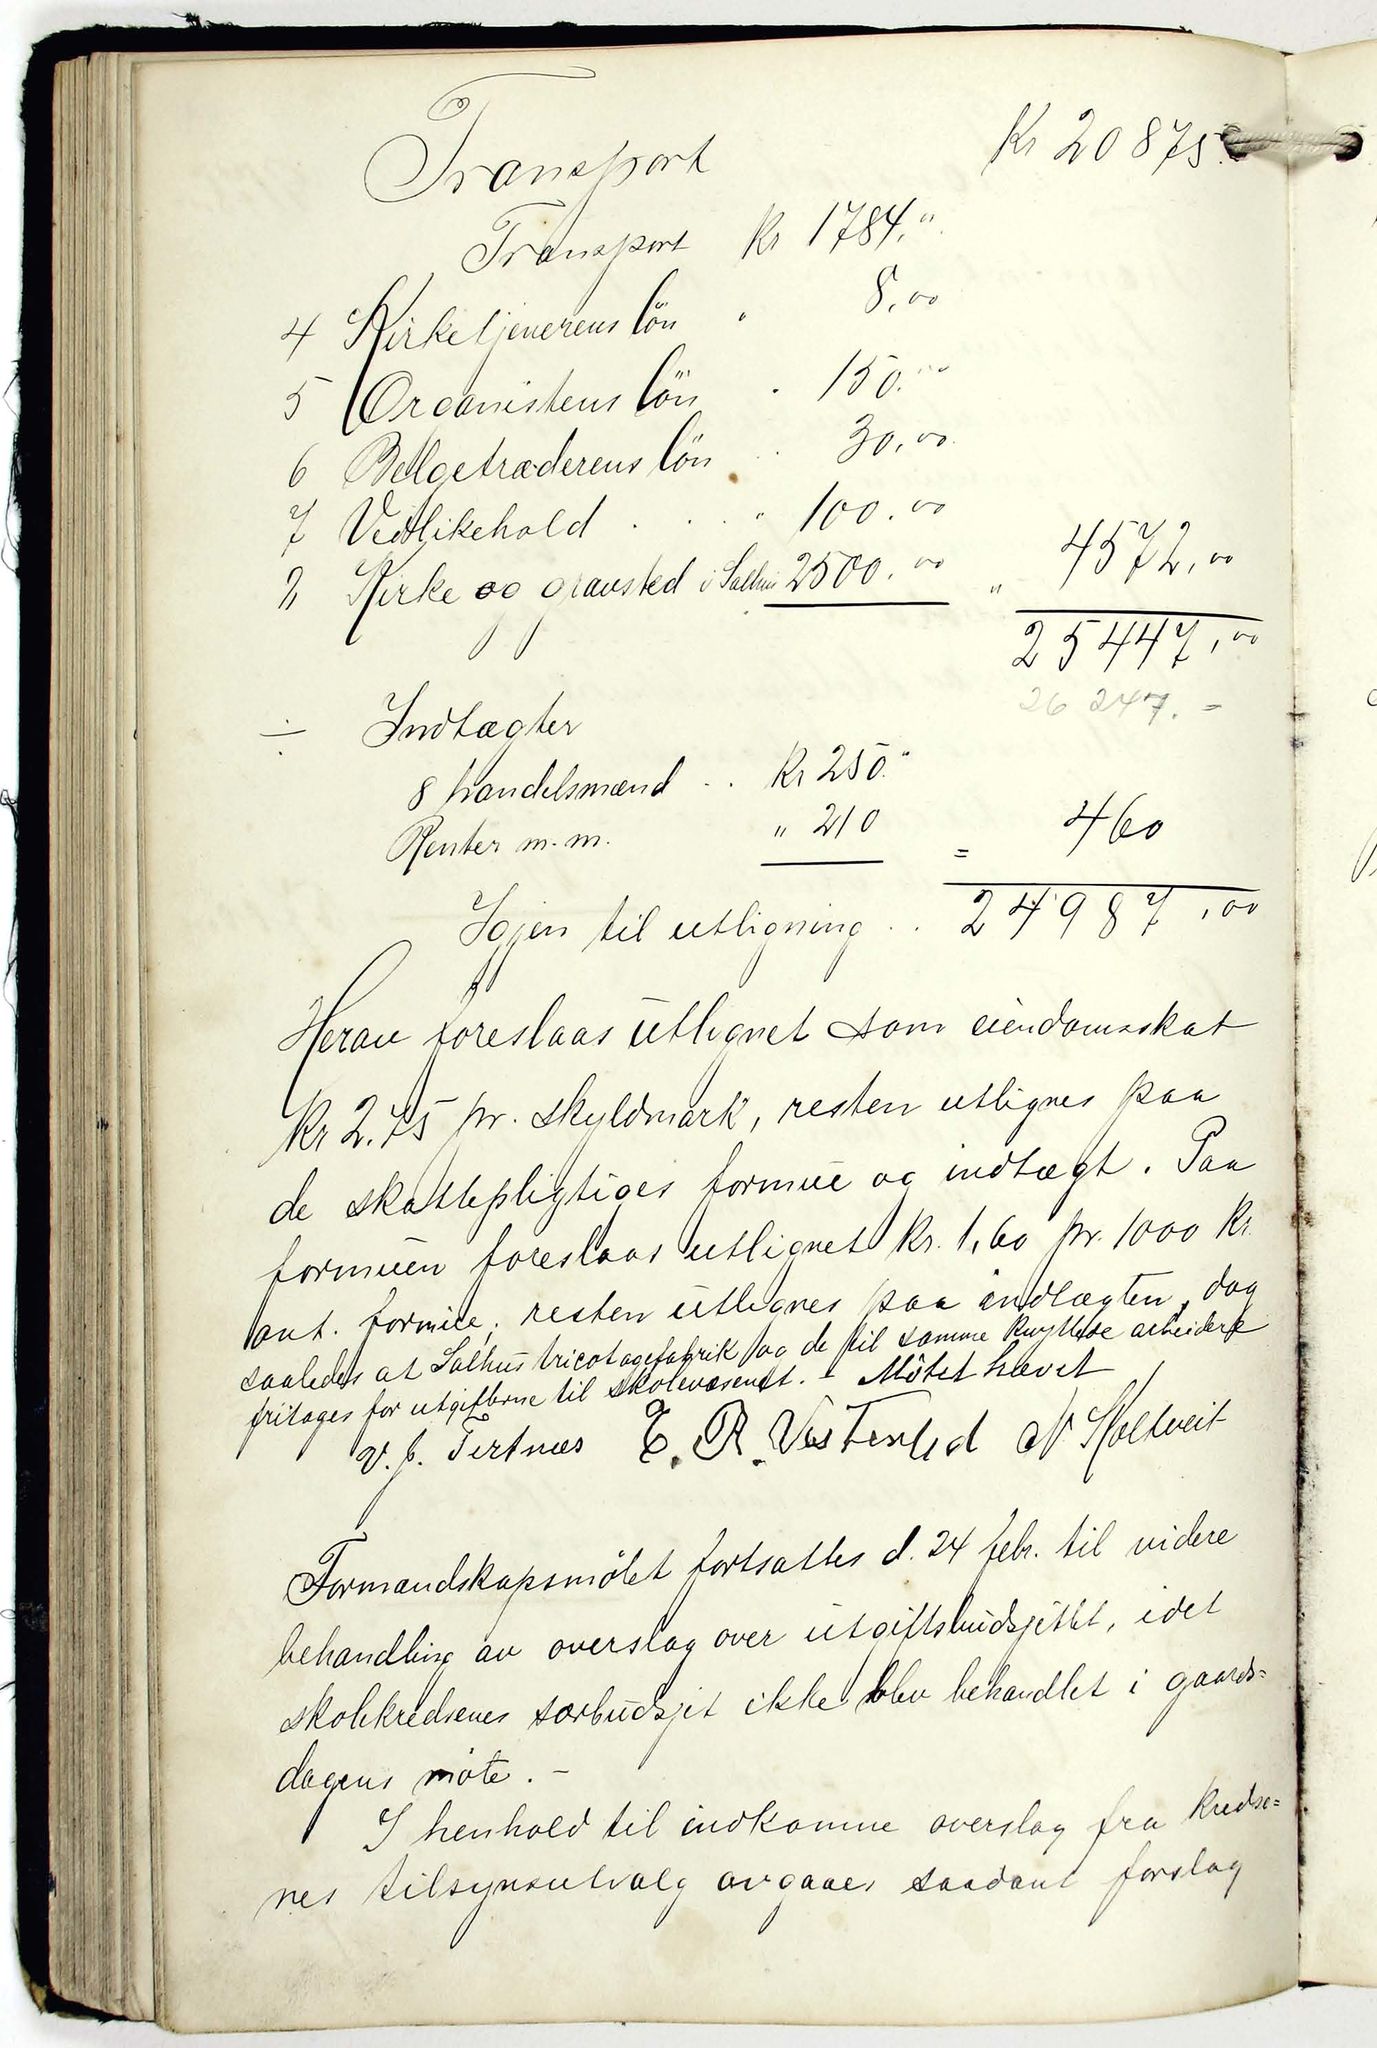 Transport Kr 20875.
Transport Kr 1784."
4 Kirketjenerens løn " 8,00
5 Organistens løn " 150.00
6 Belgetræderens løn " 30,00
7 Vedlikehold . . " 100.00
2, Kirke og gravsted i Salhus 2500.00 " 4572,00
25447,00
26 247. =
÷ Indtægter
8 handelsmænd . . Kr 250."
Renter m.m. " 210 = 460
Igjen til utligning . . 24987,00
Herav foreslaas utlignet som eiendomsskat
Kr 2.75 pr. skyldmark, resten utlignes paa
de skattepligtiges formue og indtægt. Paa
formuen foreslaas utlignet Kr. 1,60 pr. 1000 Kr.
ant. formue, resten utlignes paa indtægten, dog
saaledes at Salhus tricotagefabrik og de til samme knyttede arbeidere
fritages for utgifterne til skolevæsenet. - Møtet hævet
V. J. Tertnæs E. R. Vestenlid N Skeltveit
Formandskapsmøtet fortsattes d. 24 febr. til videre
behandling av overslag over utgiftsbudsjettet, idet
skolekredsenes særbudsjet ikke blev behandlet i gaards=
dagens møte. -
I henhold til indkomne overslag fra kredse=
nes tilsynsutvalg avgaaes saadant forslag